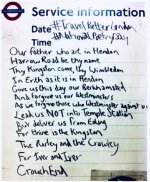 Service information
Date #TravelBetterLondon
Time #NationalPoetryDay
Our Father who art in Hendon
Harrow Road be thy name
Thy Kingston come, thy Wimbledon
In Erith as it is in Hendon
Give us this day our Berkhamsted
And forgive us our Westminsters
As we forgive those who Westminster against us
Lead us NOT into Temple Station
But deliver us from Ealing
For thine is the Kingston
The Purley and the Crawley
For Iver and Iver
Crouch End